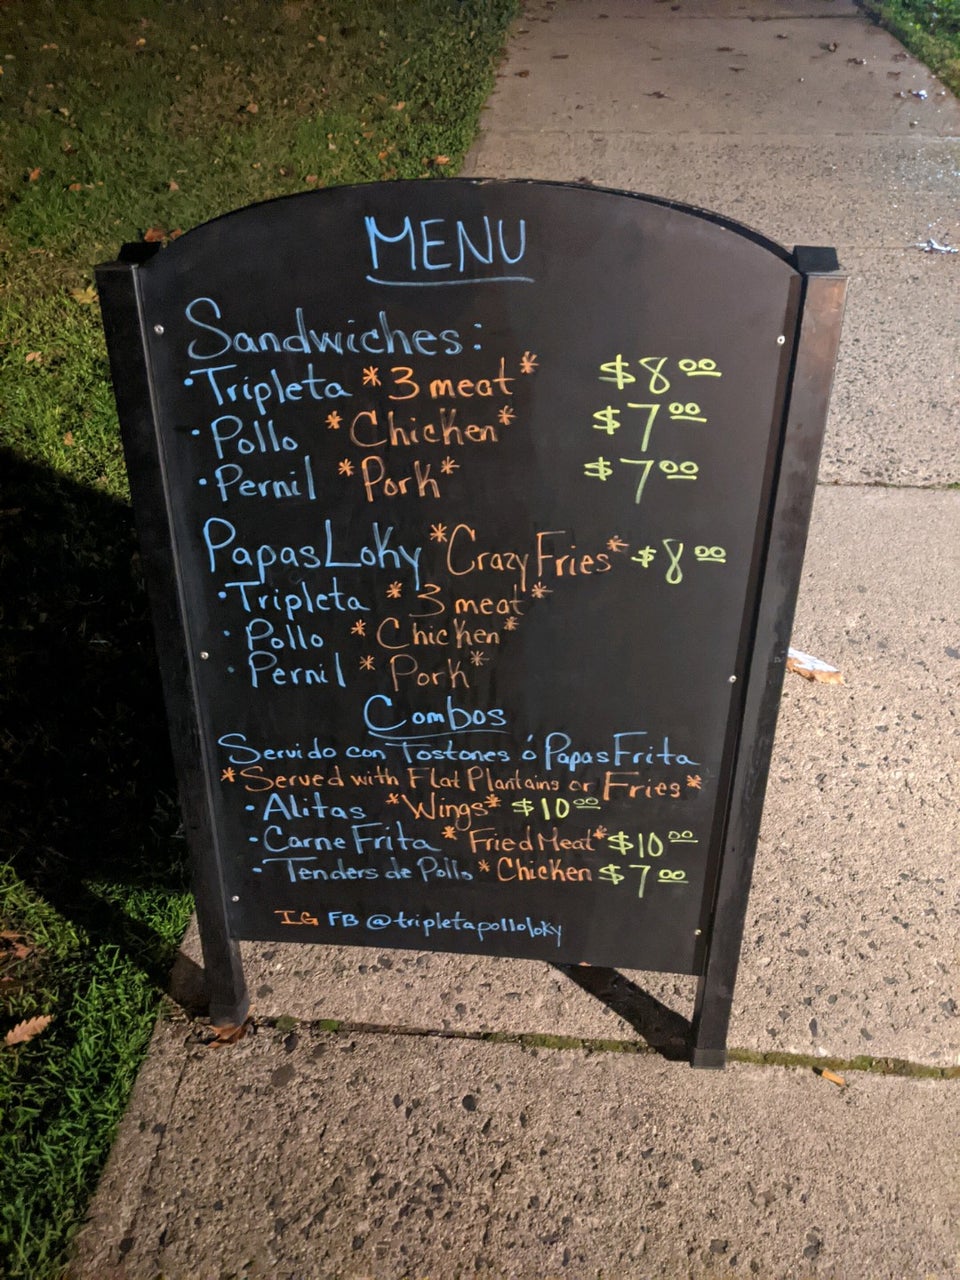 MENU
Sandwiches:
• Tripleta *3 meat* $8.00
• Pollo *Chicken* $7.00
• Pernil *Pork* $7.00
Papas Loky *Crazy Fries* $8.00
• Tripleta *3 meat*
• Pollo *Chicken*
• Pernil *Pork*
Combos
Servido con Tostones ó Papas Frita
*Served with Flat Plantains or Fries*
• Alitas *Wings* $10.00
• Carne Frita *Fried Meat* $10.00
• Tenders de Pollo *Chicken $7.00
IG FB @tripletapolloloky